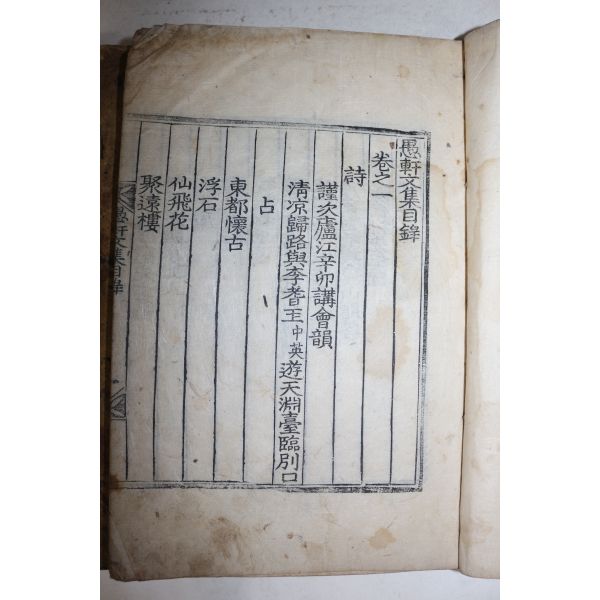 愚軒文集目錄
卷之一
詩
謹次廬江辛卯講會韻
清凉歸路與李耆玉中英遊天淵臺臨別口
占
東都懷古
浮石
仙飛花
聚遠樓
愚軒文集目錄